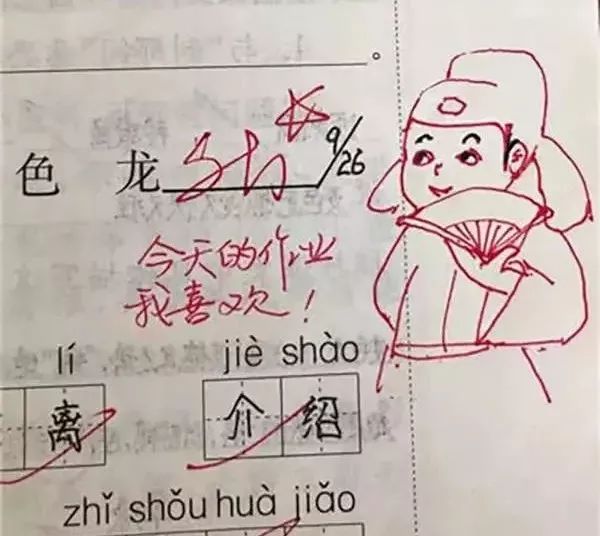 。
色 龙 9/26
今天的作业
我喜欢！
lí jiè shào
离 介 绍
zhǐ shǒu huà jiǎo